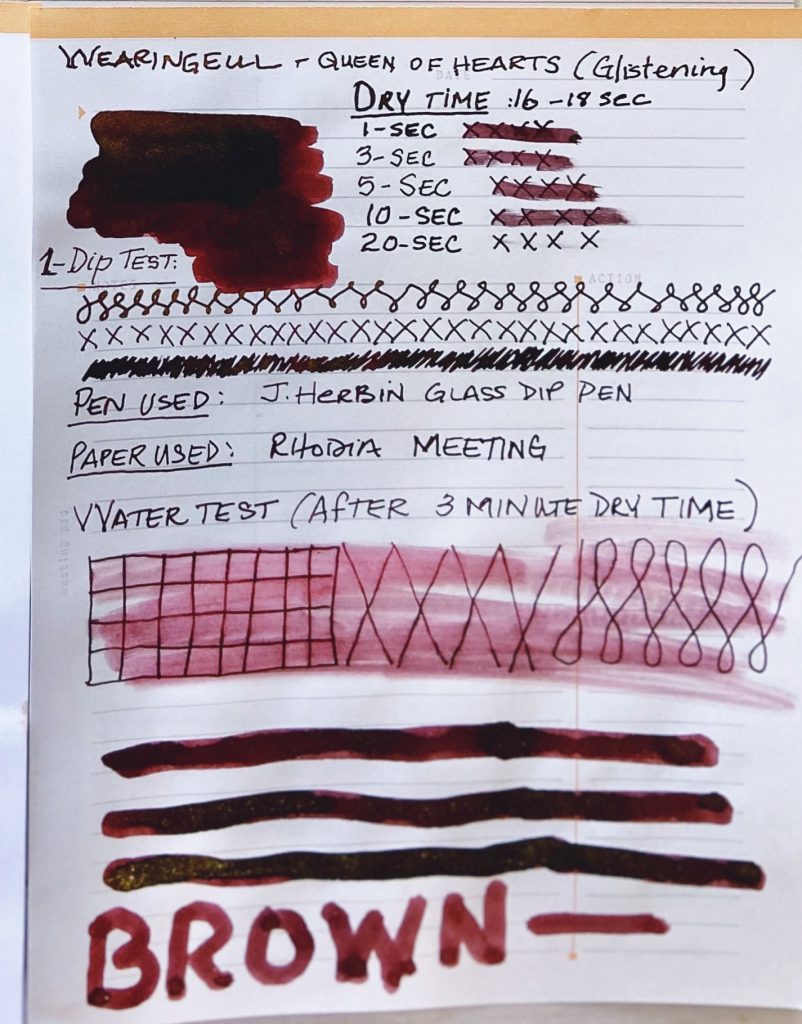 WEARINGEUL - QUEEN OF HEARTS (Glistening)
DATE
DRY TIME : 16 - 18 SEC
1-SEC XXXX
3-SEC XXXX
5-SEC XXXX
10-SEC XXXX
20-SEC XXXX
1-Dip TEST:
NOTES
ACTION
PEN USED: J. HERBIN GLASS DIP PEN
PAPER USED: RHODIA MEETING
meeting pad
WATER TEST (AFTER 3 MINUTE DRY TIME)
BROWN —